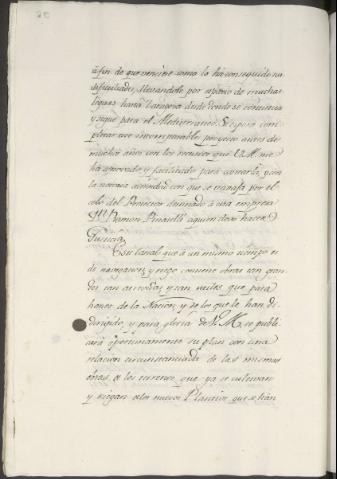 á fin de que venciese como lo ha conseguido las
dificultades, llevandole por espacio de muchas
leguas hasta Zaragoza desde donde se continúa
y sigue para el Mediterraneo. Espero com-
pletar este incomparable proyecto antes de
muchos años con los medios que V. M. me
ha aprovado y facilitado para costearlo, y con
la notoria actividad con que se trabaja por el
celo del Protector destinado á esta empresa
Dn. Ramon Pignatelli á quien devo hacer
Justicia.
Este Canal que á un mismo tiempo es
de navegacion, y riego contiene obras tan gran-
des tan atrevidas y tan utiles que para
honor de la Nacion, y de los que le han di-
dirigido, y para gloria de V. M. se publi-
cará oportunamente su plan con una
relacion circunstanciada de las mismas
obras, de los terrenos que ya se cultivan
y riegan, de los nuevos Plantios que se han